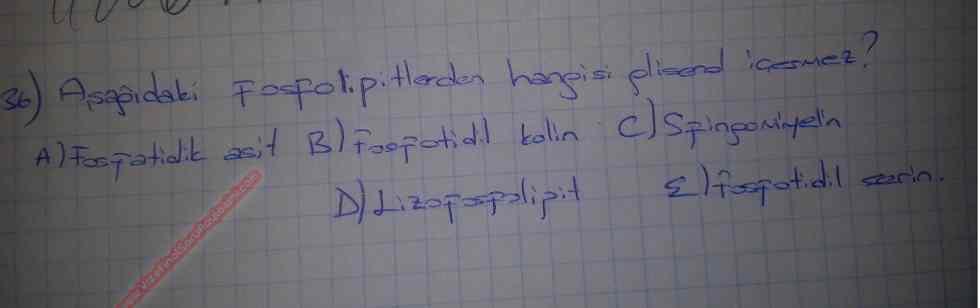 36) Aşağıdaki Fosfolipitlerden hangisi gliserol içermez?
A) Fosfatidik asit B) Fosfatidil kolin C) Sfingomiyelin
D) Lizofosfolipit E) fosfatidil serin.